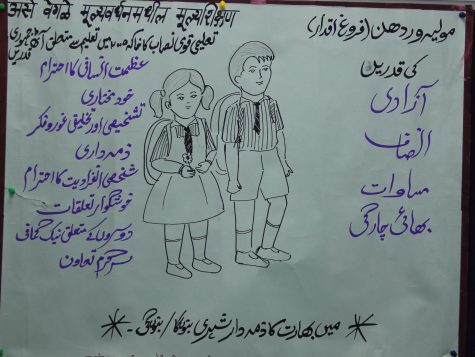 असे वेगळे मूल्यवर्धनमधील मूल्यशिक्षण
مولیہ وردھن (فروغ اقدار)
تعلیمی قومی نصاب کا خاکہ ۲۰۰۵ میں تعلیم سے متعلق آٹھ جمہوری قدریں
عظمت انسانی کا احترام
خود مختاری
تشخیصی اور تخلیقی غور و فکر
ذمہ داری
شخصی انفرادیت کا احترام
خوشگوار تعلقات
دوسروں کے متعلق نیک
سرگرم تعاون
کی قدریں
آزادی
انصاف
مساوات
بھائی چارگی
میں بھارت کا ذمہ دار شہری بنوں گا / بنوں گی۔